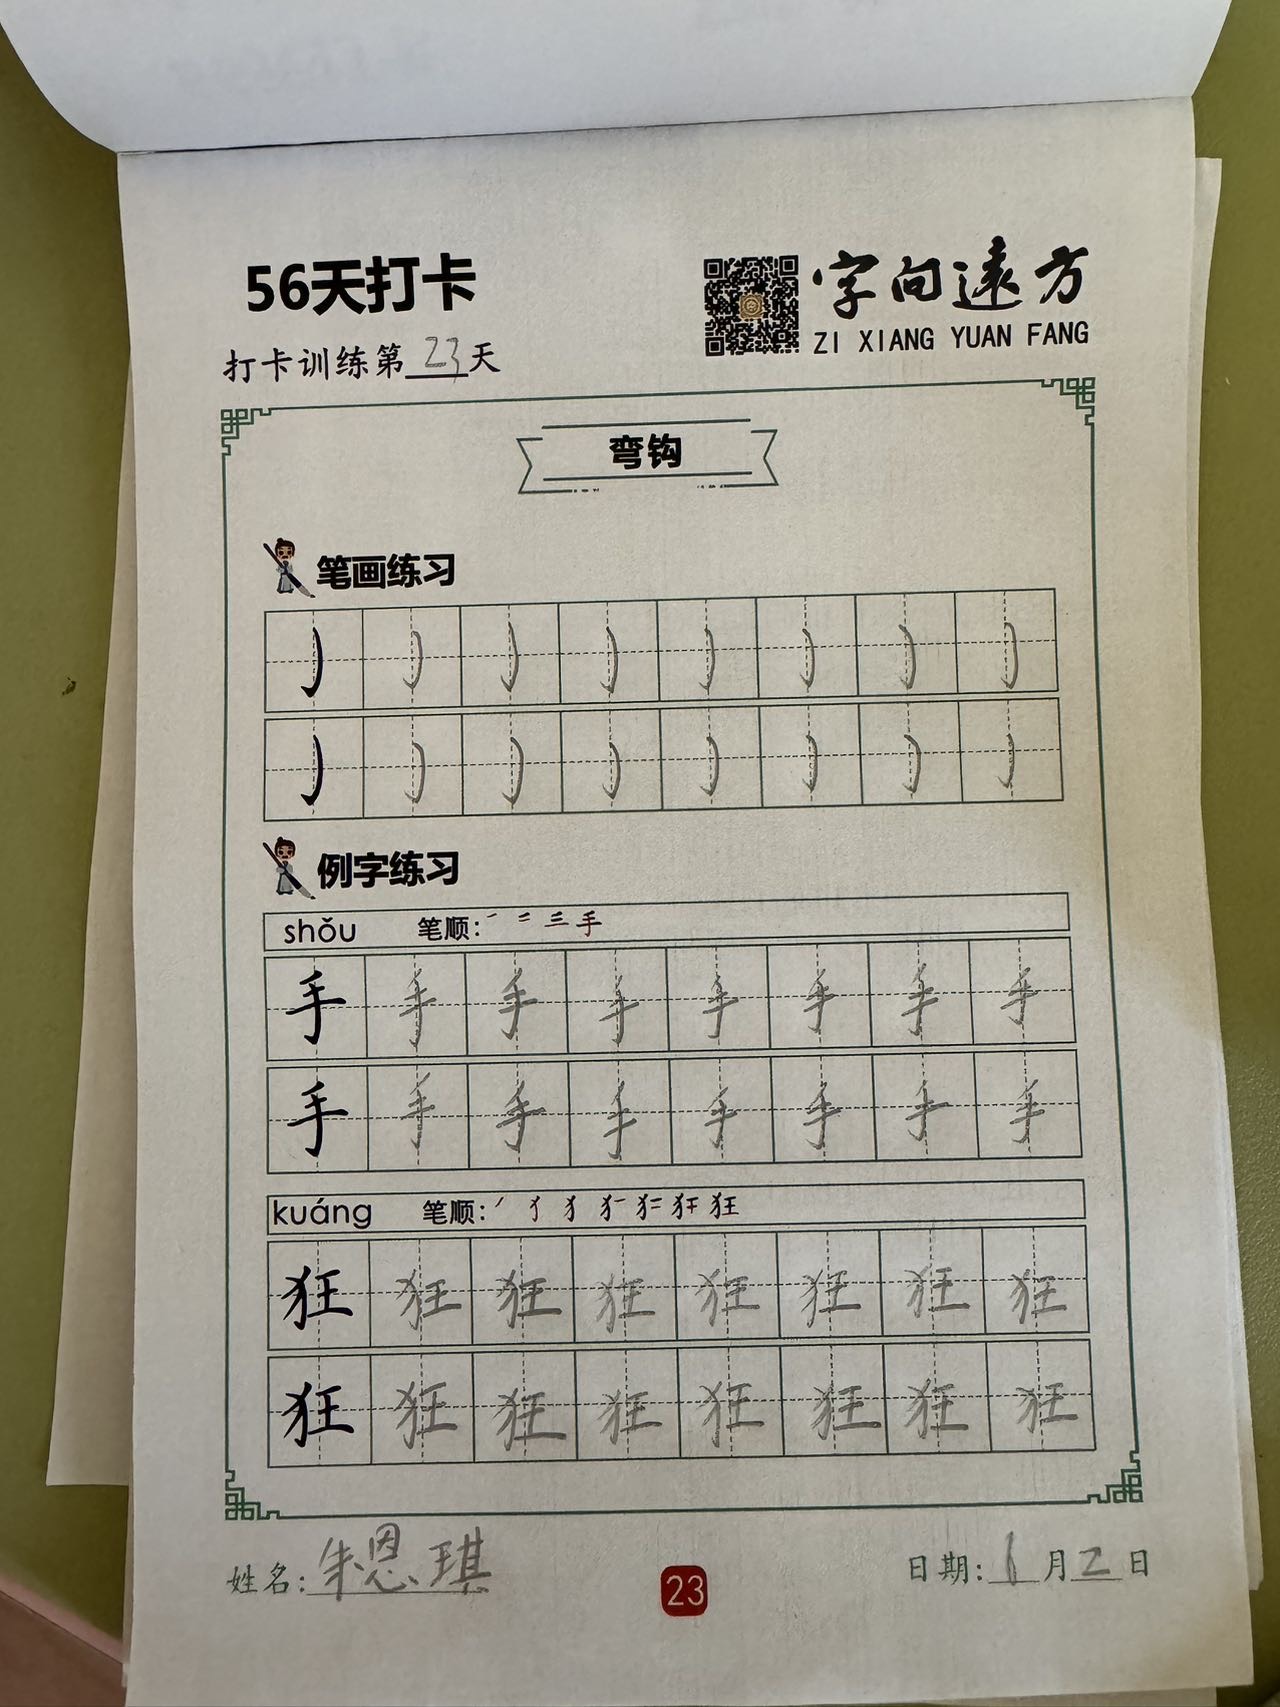 56天打卡
字向遠方
ZI XIANG YUAN FANG
打卡训练第23天
弯钩
笔画练习
例字练习
shǒu 笔顺: 手
手 手 手 手 手 手 手 手
手 手 手 手 手 手 手 手
kuáng 笔顺: 狂
狂 狂 狂 狂 狂 狂 狂 狂
狂 狂 狂 狂 狂 狂 狂 狂
姓名: 朱恩琪
23
日期: 1月2日